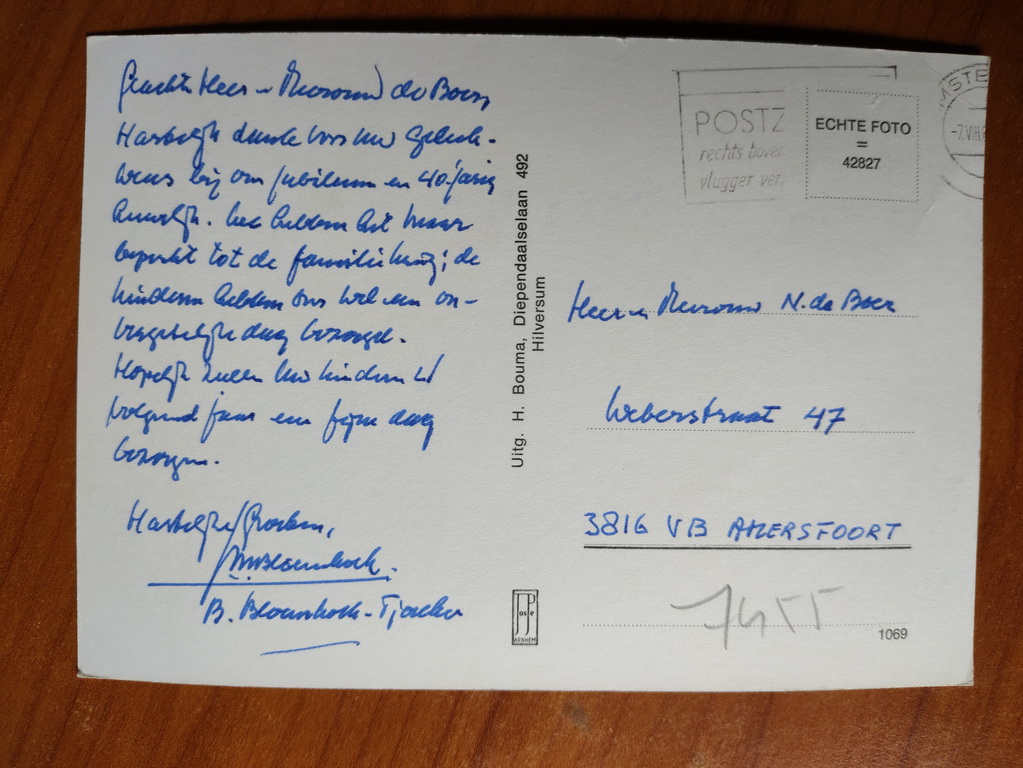 Geachte Heer en Mevrouw de Boer,
Hartelijk dank voor uw geluk-
wens bij ons jubileum en 40-jarig
huwelijk. We hielden het maar
beperkt tot de familiekring; de
kinderen hielden ons wel een on-
vergetelijke dag bezorgd.
Hopelijk zullen uw kinderen U
volgend jaar een fijne dag
bezorgen.
Hartelijke Groeten,
B.
Uitg. H. Bouma, Diependaalselaan 492
Hilversum
JosPé
ARNHEM
POSTZ
rechts boven
vlugger ver
ECHTE FOTO
=
42827
MSTE
-7.VIII
Heer en Mevrouw N. de Boer
Weberstraat 47
3816 VB AMERSFOORT
7455
1069